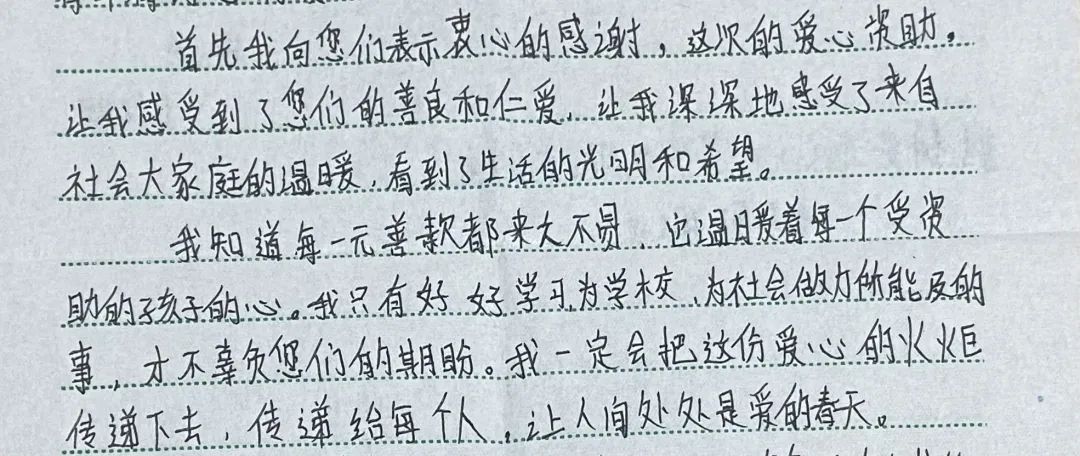 首先我向您们表示衷心的感谢，这次的爱心资助，
让我感受到了您们的善良和仁爱，让我深深地感受了来自
社会大家庭的温暖，看到了生活的光明和希望。
我知道每一元善款都来大不易，它温暖着每一个受资
助的孩子的心。我只有好好学习，为学校、为社会做力所能及的
事，才不辜负您们的期盼。我一定会把这份爱心的火炬
传递下去，传递给每个人，让人间处处是爱的春天。